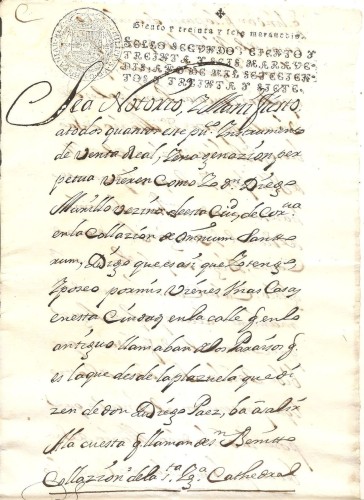 Ciento y treinta y seis marauedis.
SELLO SEGVNDO, CIENTO Y
TREINTA Y SEIS MARAVE-
DIS, AÑO DE MIL SETECIEN-
TOS Y TREINTA Y SIETE.
Sea Notorio, y Manifiesto
atodos quantos este pu.co Instrumento
de Venta Real, y enagenazion per
petua Vieren Como Yo Dn. Diego
Murillo vezino de esta Ciud. de Corua
en la Collazion de omnium Sancto
rum, Digo que es asi que Yo tengo
y poseo por mis Vienes Vnas Casas
en esta Ciudad en la calle q. en lo
antiguo llamaban de los Paraisos q.
es la que desde la plazuela que di
zen de don Diego Paez, ba a salir
a la cuesta q. llaman de Sn. Benito
Collazion de la Sta. Yga. Cathedral